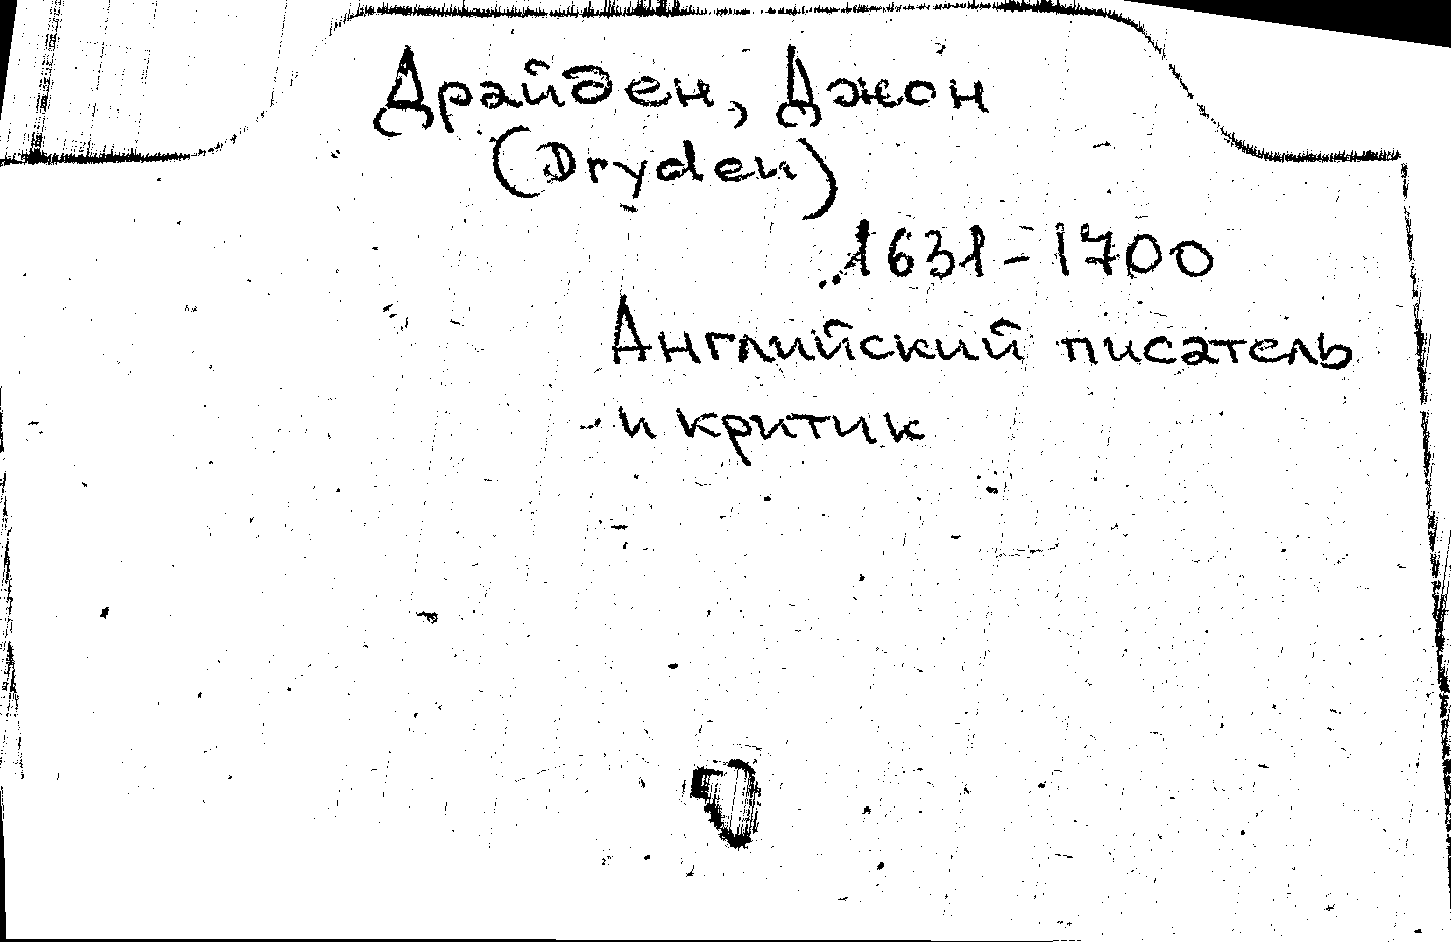 Драйден, Джон
(Dryden)
1631-1700
Английский писатель
и критик